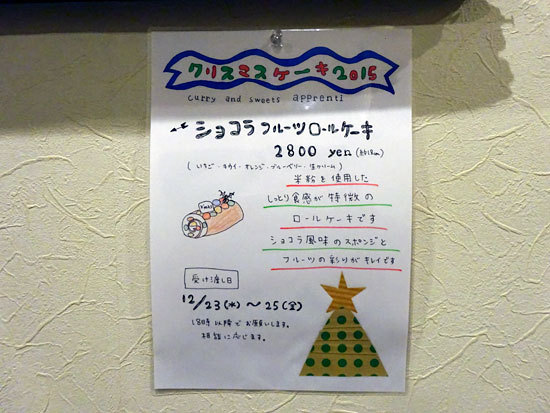 クリスマスケーキ2015
curry and sweets apprenti
ショコラフルーツロールケーキ
2800 yen (約18cm)
(いちご・キウイ・オレンジ・ブルーベリー・生クリーム)
米粉を使用した
しっとり食感が特徴の
ロールケーキです
ショコラ風味のスポンジと
フルーツの彩りがキレイです
受け渡し日
12/23(水)～25(金)
18時以降でお願いします。
相談に応じます。